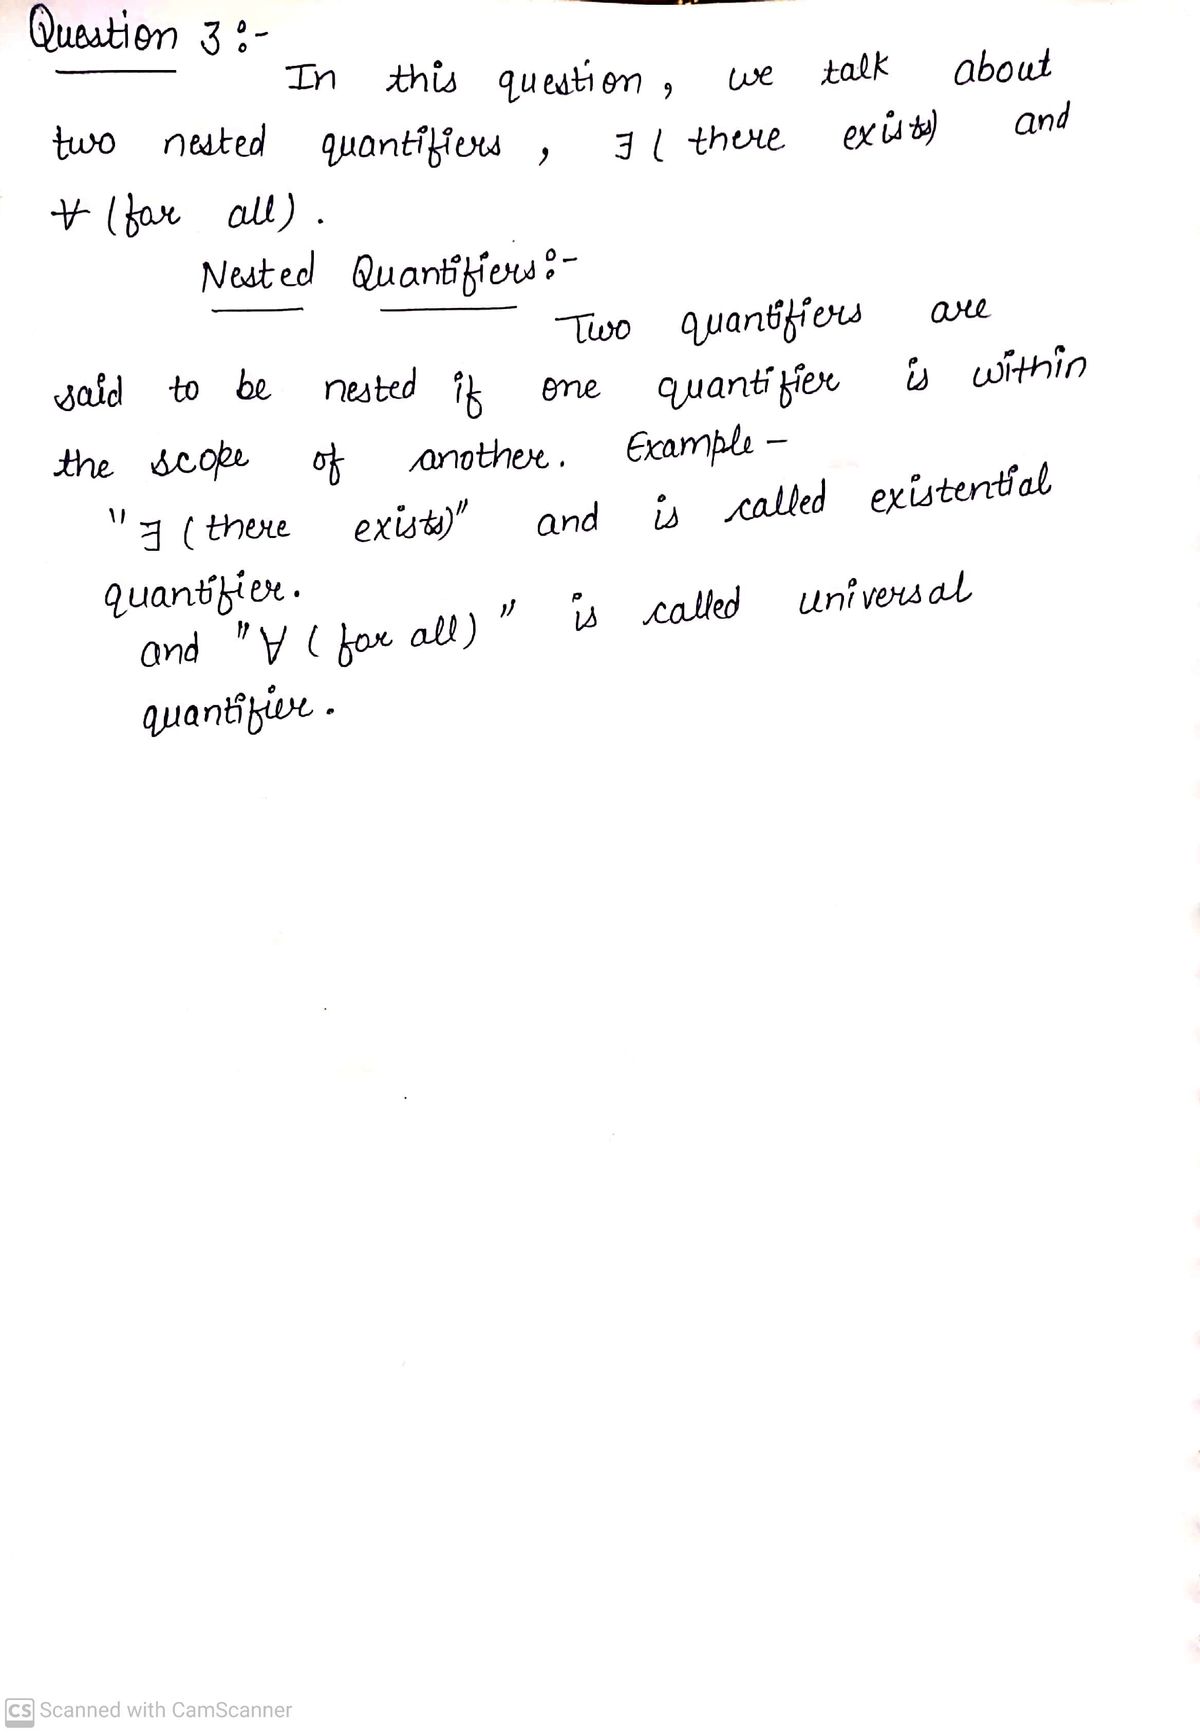 Question 3 :-
In this question, we talk about
two nested quantifiers, ∃ (there exists) and
∀ (for all).
Nested Quantifiers :-
Two quantifiers are
said to be nested if one quantifier is within
the scope of another. Example -
"∃ (there exists)" and is called existential
quantifier.
and "∀ (for all)" is called universal
quantifier.
CS Scanned with CamScanner